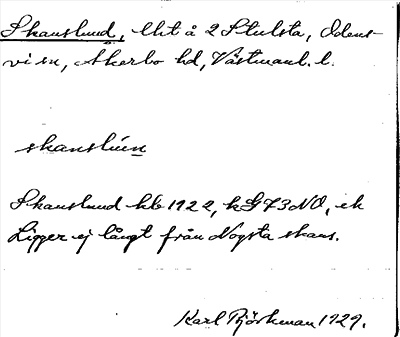 Skanslund, lht å 2 Stulsta, Odens-
vi sn, Åkerbo hd, Västmanl. l.
skanslún
Skanslund hkb 1922, kG73NO, ek
Ligger ej långt från Nogsta skans.
Karl Björkman 1929.